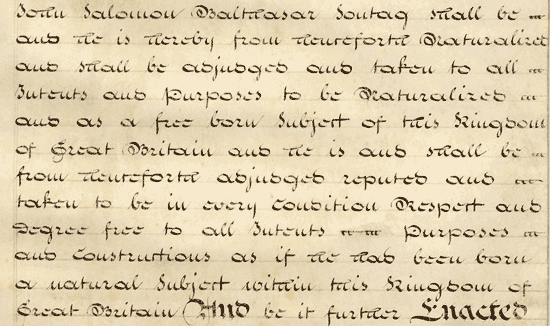 John Salomon Balthasar Sontag shall be
and he is hereby from henceforth Naturalized
and shall be adjudged and taken to all
Intents and Purposes to be Naturalized
and as a free born Subject of this Kingdom
of Great Britain and he is and shall be
from henceforth adjudged reputed and
taken to be in every Condition Respect and
Degree free to all Intents Purposes
and Constructions as if he had been born
a natural Subject within this Kingdom of
Great Britain And be it further Enacted